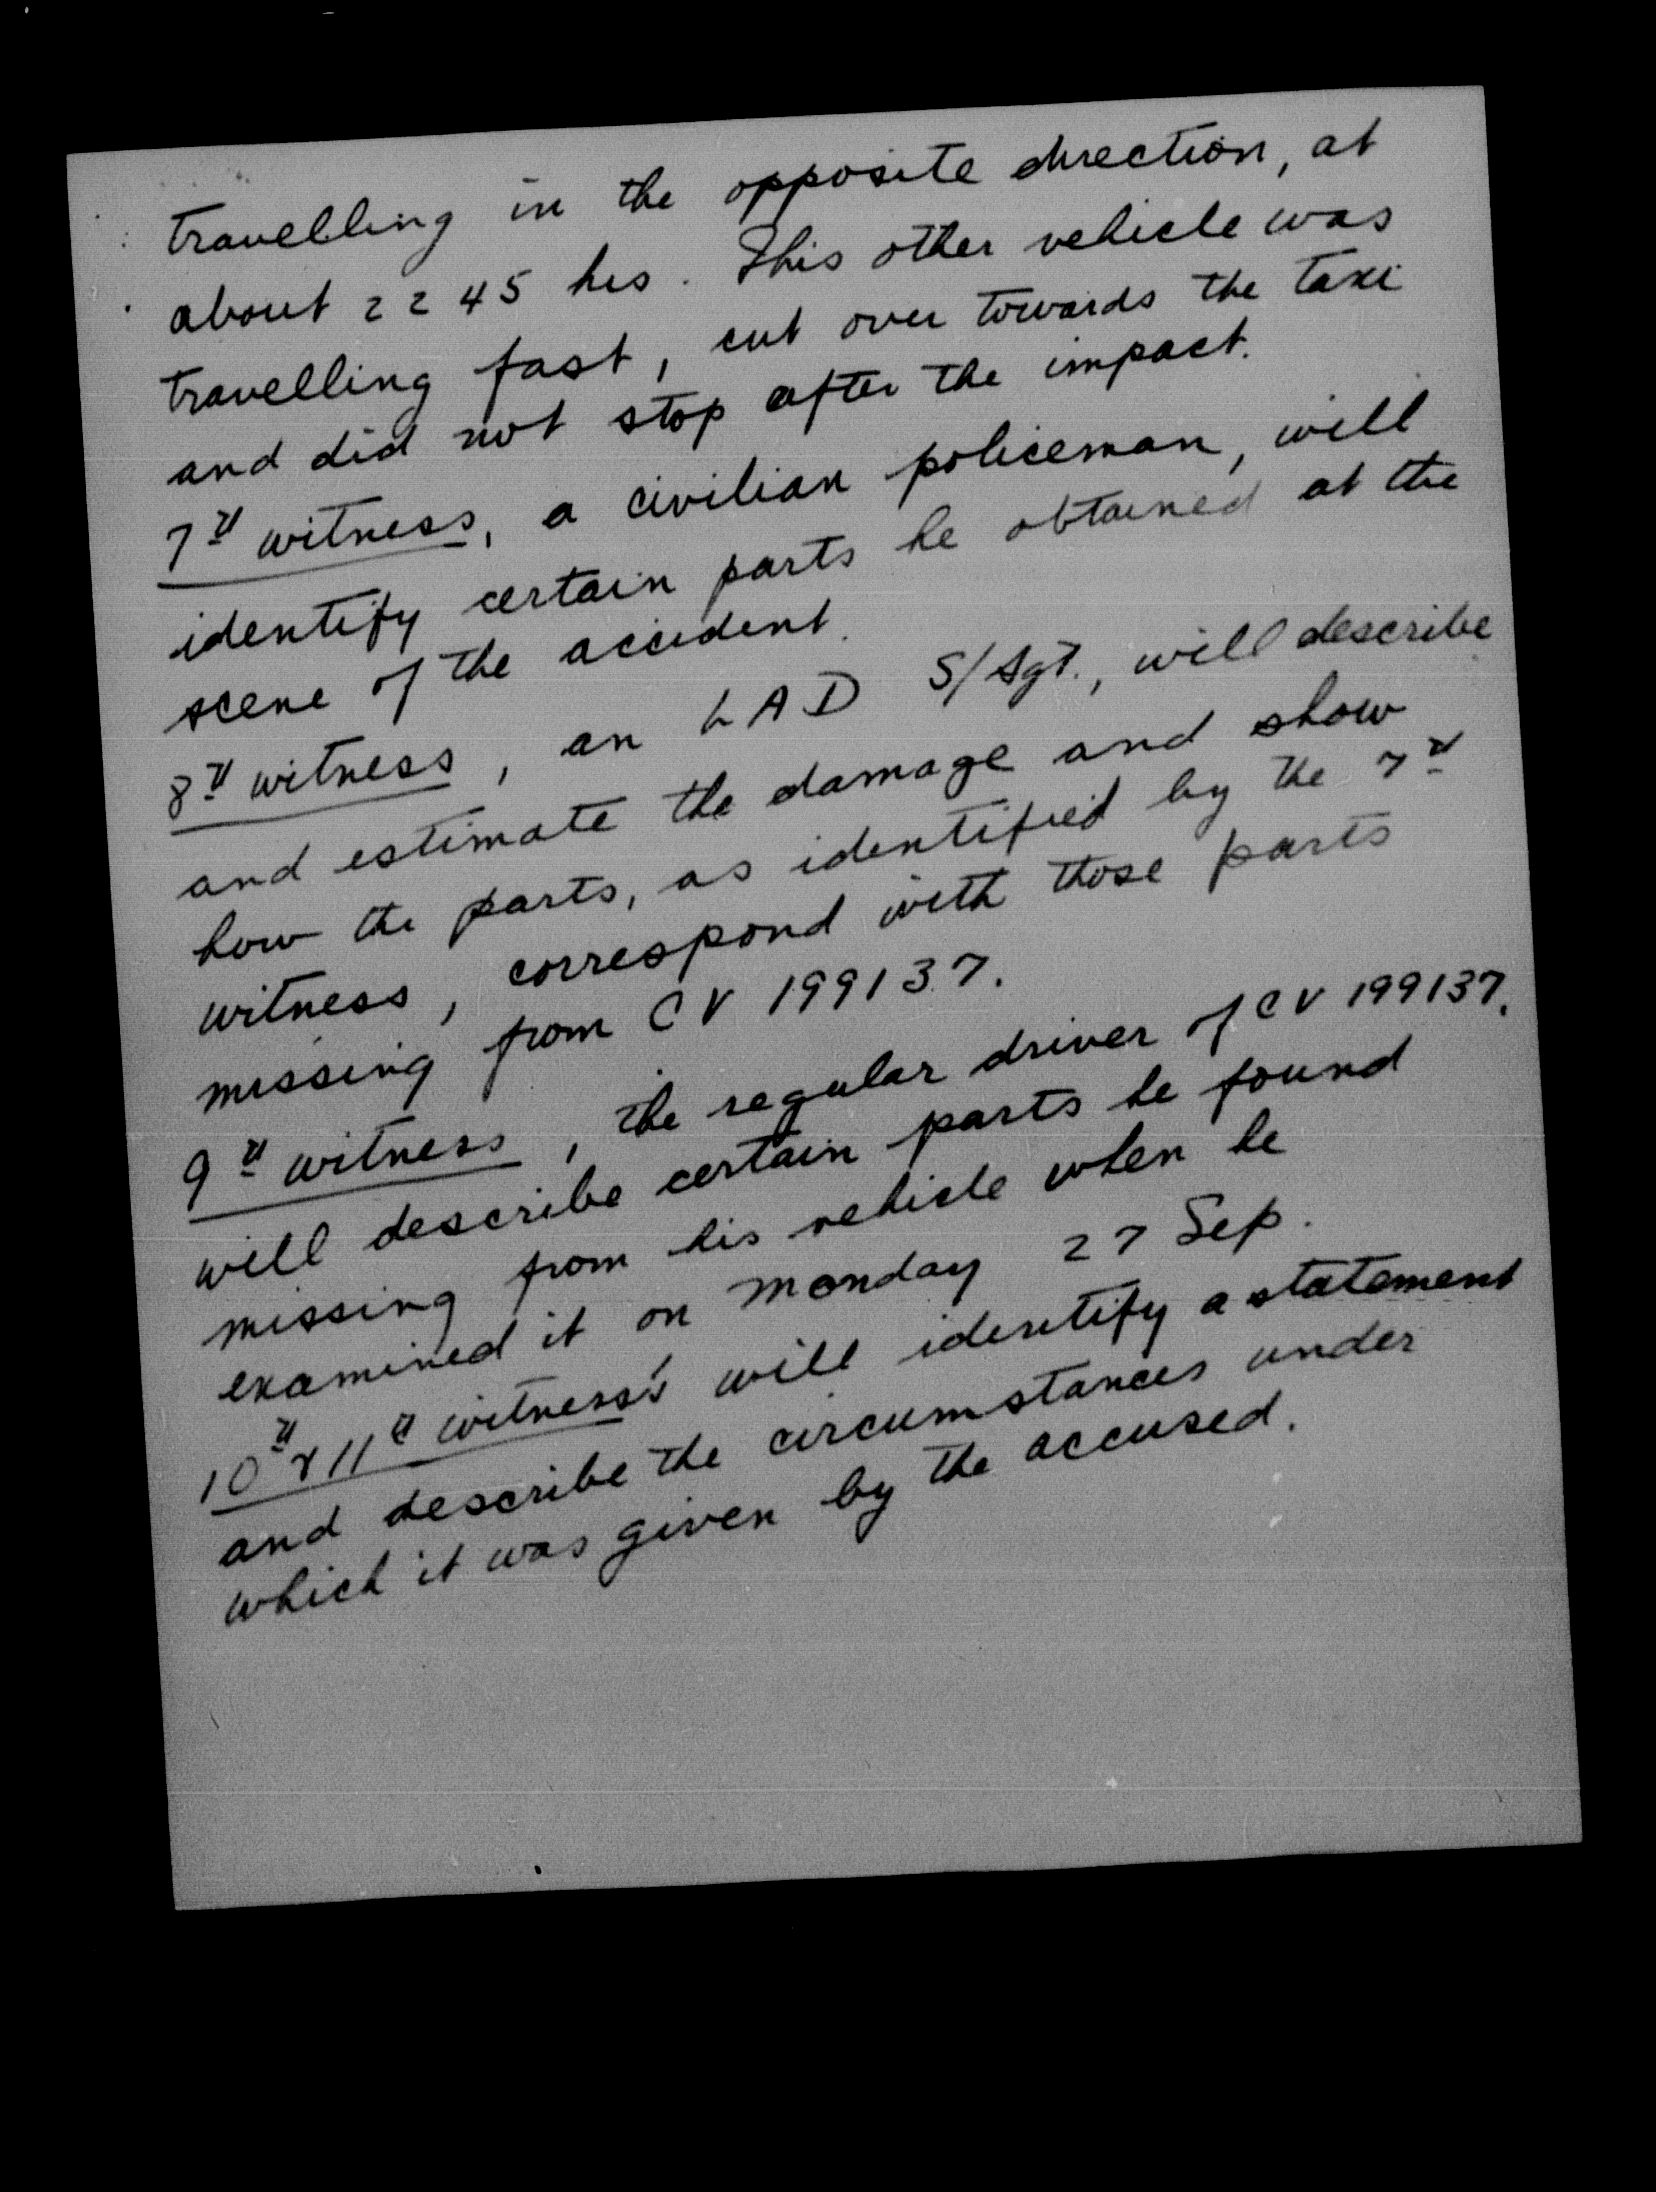 travelling in the opposite direction, at
about 2245 hrs. This other vehicle was
travelling fast, cut over towards the taxi
and did not stop after the impact.
7th witness, a civilian policeman, will
identify certain parts he obtained at the
scene of the accident.
8th witness, an LAD S/Sgt., will describe
and estimate the damage and show
how the parts, as identified by the 7th
witness, correspond with those parts
missing from CV 199137.
9th witness, the regular driver of CV 199137,
will describe certain parts he found
missing from his vehicle when he
examined it on Monday 27 Sep.
10th & 11th witness's will identify a statement
and describe the circumstances under
which it was given by the accused.